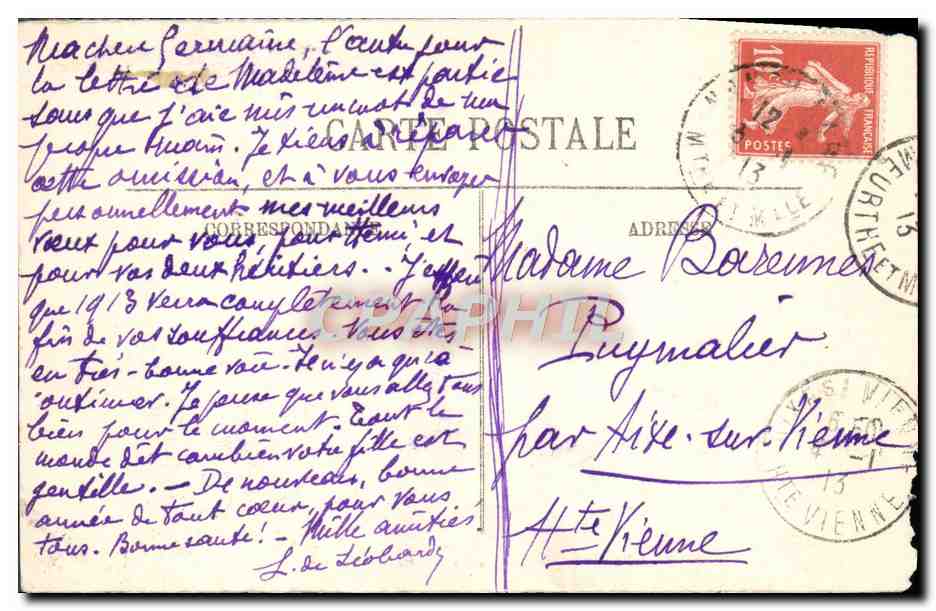 Ma chère Germaine, l'autre jour
la lettre de Madeleine est partie
sans que j'aie mis un mot de ma
propre main. Je tiens à réparer
cette omission, et à vous envoyer
personnellement mes meilleurs
vœux pour vous, pour Henri, et
pour vos deux héritiers. . J'espère
que 1913 verra complètement la
fin de vos souffrances. Vous êtes
en très-bonne voie. Il n'y a qu'à
continuer. Je pense que vous allez tous
bien pour le moment. Tout le
monde dit combien votre fille est
gentille. - De nouveau, bonne
année de tout cœur, pour vous
tous. Bonne santé! - Mille amitiés
L. de Léobardy
CARTE POSTALE
CORRESPONDANCE
ADRESSE
Madame Barenner
Puymalier
par Aixe-sur-Vienne
Hte Vienne
10
POSTES
REPUBLIQUE FRANÇAISE
12
13
MTHE ET MLLE
MEURTHE ET M
13
13
HTE VIENNE
CPAPHIL